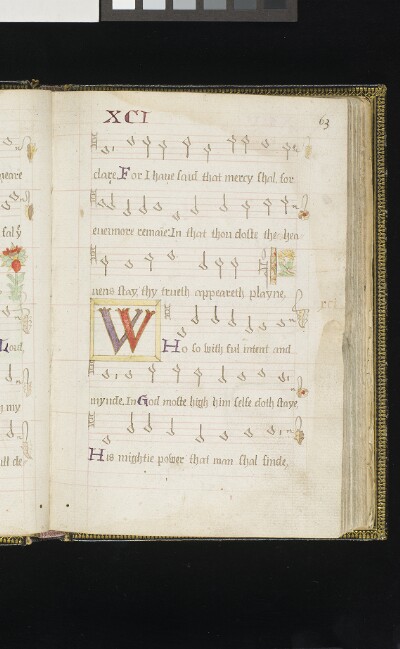 XCI
63
clare, For I haue said that mercy shal, for
euermore remaie: In that thou doste the hea
uens stay, thy trueth appeareth playne,
WHo so with ful intent and
mynde, In God moste high him selfe doth staye
His mightie power that man shal finde,
xci
eare
Loud,
my